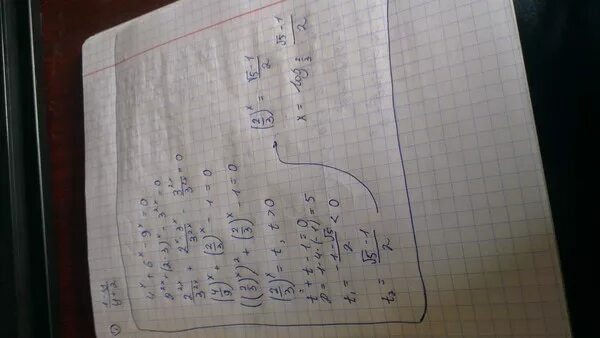 1)
4^x + 6^x - 9^x = 0
2^{2x} + (2·3)^x - 3^{2x} = 0
2^{2x}/3^{2x} + 2^x·3^x/3^{2x} - 3^{2x}/3^{2x} = 0
(4/9)^x + (2/3)^x - 1 = 0
((2/3)^x)^2 + (2/3)^x - 1 = 0
(2/3)^x = t, t > 0
t^2 + t - 1 = 0
D = 1-4·(-1) = 5
t_1 = (-1-√5)/2 < 0
t_2 = (√5-1)/2
(2/3)^x = (√5-1)/2
x = log_{2/3} (√5-1)/2